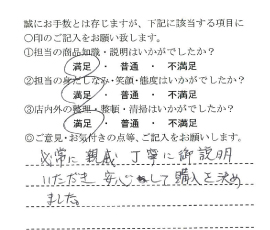 誠にお手数とは存じますが、下記に該当する項目に
○印のご記入をお願い致します。
①担当の商品知識・説明はいかがでしたか?
満足 ・ 普通 ・ 不満足
②担当の身だしなみ・笑顔・態度はいかがでしたか?
満足 ・ 普通 ・ 不満足
③店内外の整理・整頓・清掃はいかがでしたか?
満足 ・ 普通 ・ 不満足
◎ご意見・お気付きの点等、ご記入をお願いします。
非常に親威 丁寧に御説明
いただき 安心して購入を決め
ました。